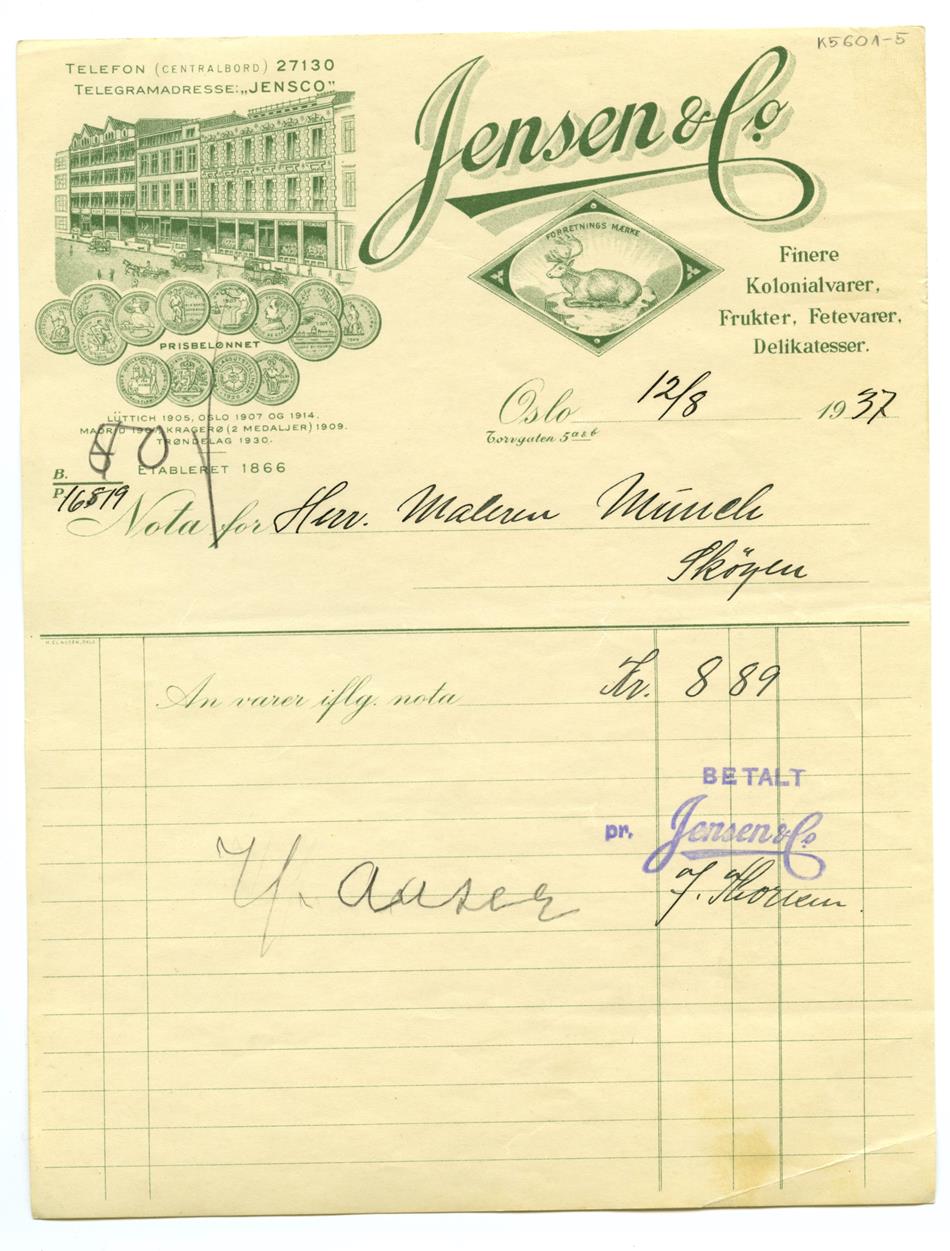 K5601-5
TELEFON (CENTRALBORD) 27130
TELEGRAMADRESSE: „JENSCO"
Jensen & Co
FORRETNINGS MÆRKE
Finere
Kolonialvarer,
Frukter, Fetevarer,
Delikatesser.
PRISBELØNNET
LÜTTICH 1905, OSLO 1907 OG 1914.
MADRID 1907, KRAGERØ (2 MEDALJER) 1909.
TRØNDELAG 1930.
ETABLERET 1866
Oslo 12/8 1937
Torvgaten 5 a & b
80
B.
P. 16819
Nota for Herr. Maleren Münch
Sköyen
An varer iflg. nota Kr. 8 89
BETALT
pr. Jensen & Co